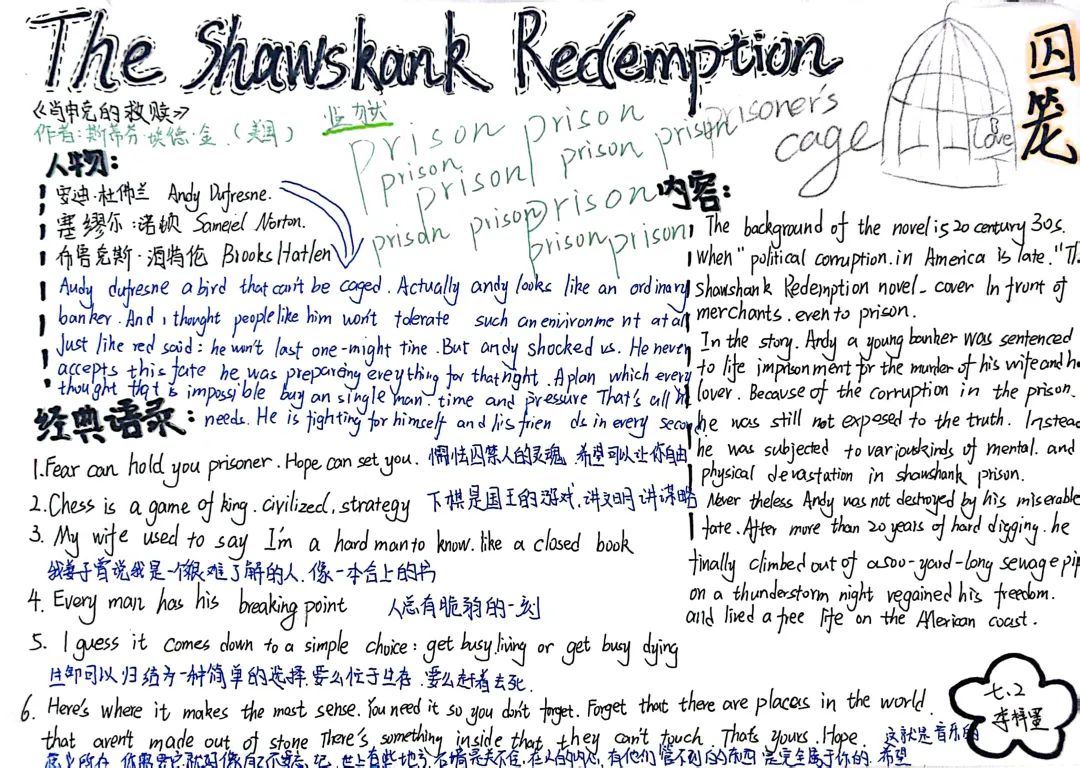 The Shawskank Redemption
囚笼
《肖申克的救赎》
作者:斯蒂芬·埃德·金(美国)
监狱
prison prison
prison prison prison
prison
prison prison prison
prison prison
prisoner's
cage
Love
人物:
安迪·杜伟兰 Andy Dufresne.
塞缪尔·诺顿
Norton.
布鲁克斯·海特伦 Brooks Hatlen
Andy dufresne a bird that can't be caged. Actually andy looks like an ordinary
banker. And i thought people like him won't tolerate such an environment at all
Just like red said: he won't last one-night time. But andy shocked us. He never
accepts this fate he was preparing everything for that night. A plan which every
thought that is impossible buy an single man. time and pressure That's all he
needs. He is fighting for himself and his friends in every second
经典语录:
1.Fear can hold you prisoner. Hope can set you. 惰性囚禁人的灵魂. 希望可以让你自由
2.Chess is a game of king. civilized, strategy 下棋是国王的游戏,讲文明讲谋略
3. My wife used to say I'm a hard man to know. like a closed book
我妻子曾说我是一个很难了解的人.像一本合上的书
4. Every man has his breaking point 人总有脆弱的一刻
5. I guess it comes down to a simple choice: get busy living or get busy dying
生命可以归结为一种简单的选择.要么忙于生存.要么赶着去死.
6. Here's where it makes the most sense. You need it so you don't forget. Forget that there are places in the world
that aren't made out of stone There's something inside that they can't touch. Thats yours. Hope. 这就是音乐的
内容:
The background of the novel is 20 century 30s.
When "political corruption. in America is late."
Shawshank Redemption novel - cover In front of
merchants. even to prison.
In the story. Andy a young banker was sentenced
to life imprisonment for the murder of his wife and
lover. Because of the corruption in the prison.
he was still not exposed to the truth. Instead
he was subjected to various kinds of mental. and
physical devastation in shawshank prison.
Never theless Andy was not destroyed by his miserable
fate. After more than 20 years of hard digging. he
finally climbed out of a 500-yard-long sewage pip
on a thunderstorm night regained his freedom.
and lived a free life on the American coast.
七.2